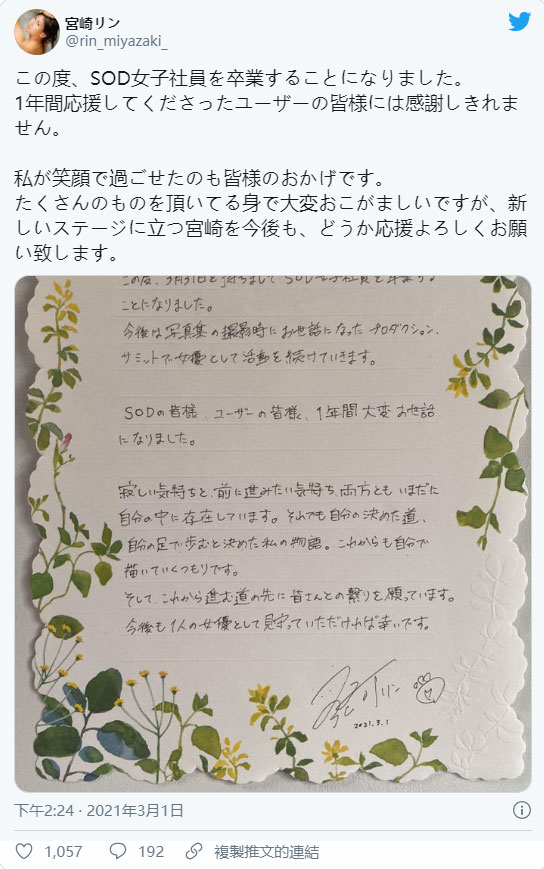 宮崎リン
@rin_miyazaki_
この度、SOD女子社員を卒業することになりました。
1年間応援してくださったユーザーの皆様には感謝しきれま
せん。
私が笑顔で過ごせたのも皆様のおかげです。
たくさんのものを頂いてる身で大変おこがましいですが、新
しいステージに立つ宮崎を今後も、どうか応援よろしくお願
い致します。
この度、3月31日を持ちましてSOD女子社員を卒業する
ことになりました。
今後は写真集の撮影時にお世話になったプロダクション、
サミットで女優として活動を続けていきます。
SODの皆様、ユーザーの皆様、1年間大変お世話
になりました。
寂しい気持ちと、前に進みたい気持ち、両方ともいまだに
自分の中に存在しています。それでも自分の決めた道、
自分の足で歩むと決めた私の物語。これからも自分で
描いていくつもりです。
そして、これから進む道の先に皆さんとの繋りを願っています。
今後も1人の女優として見守っていただければ幸いです。
2021.3.1
下午2:24 · 2021年3月1日
1,057
192
複製推文的連結